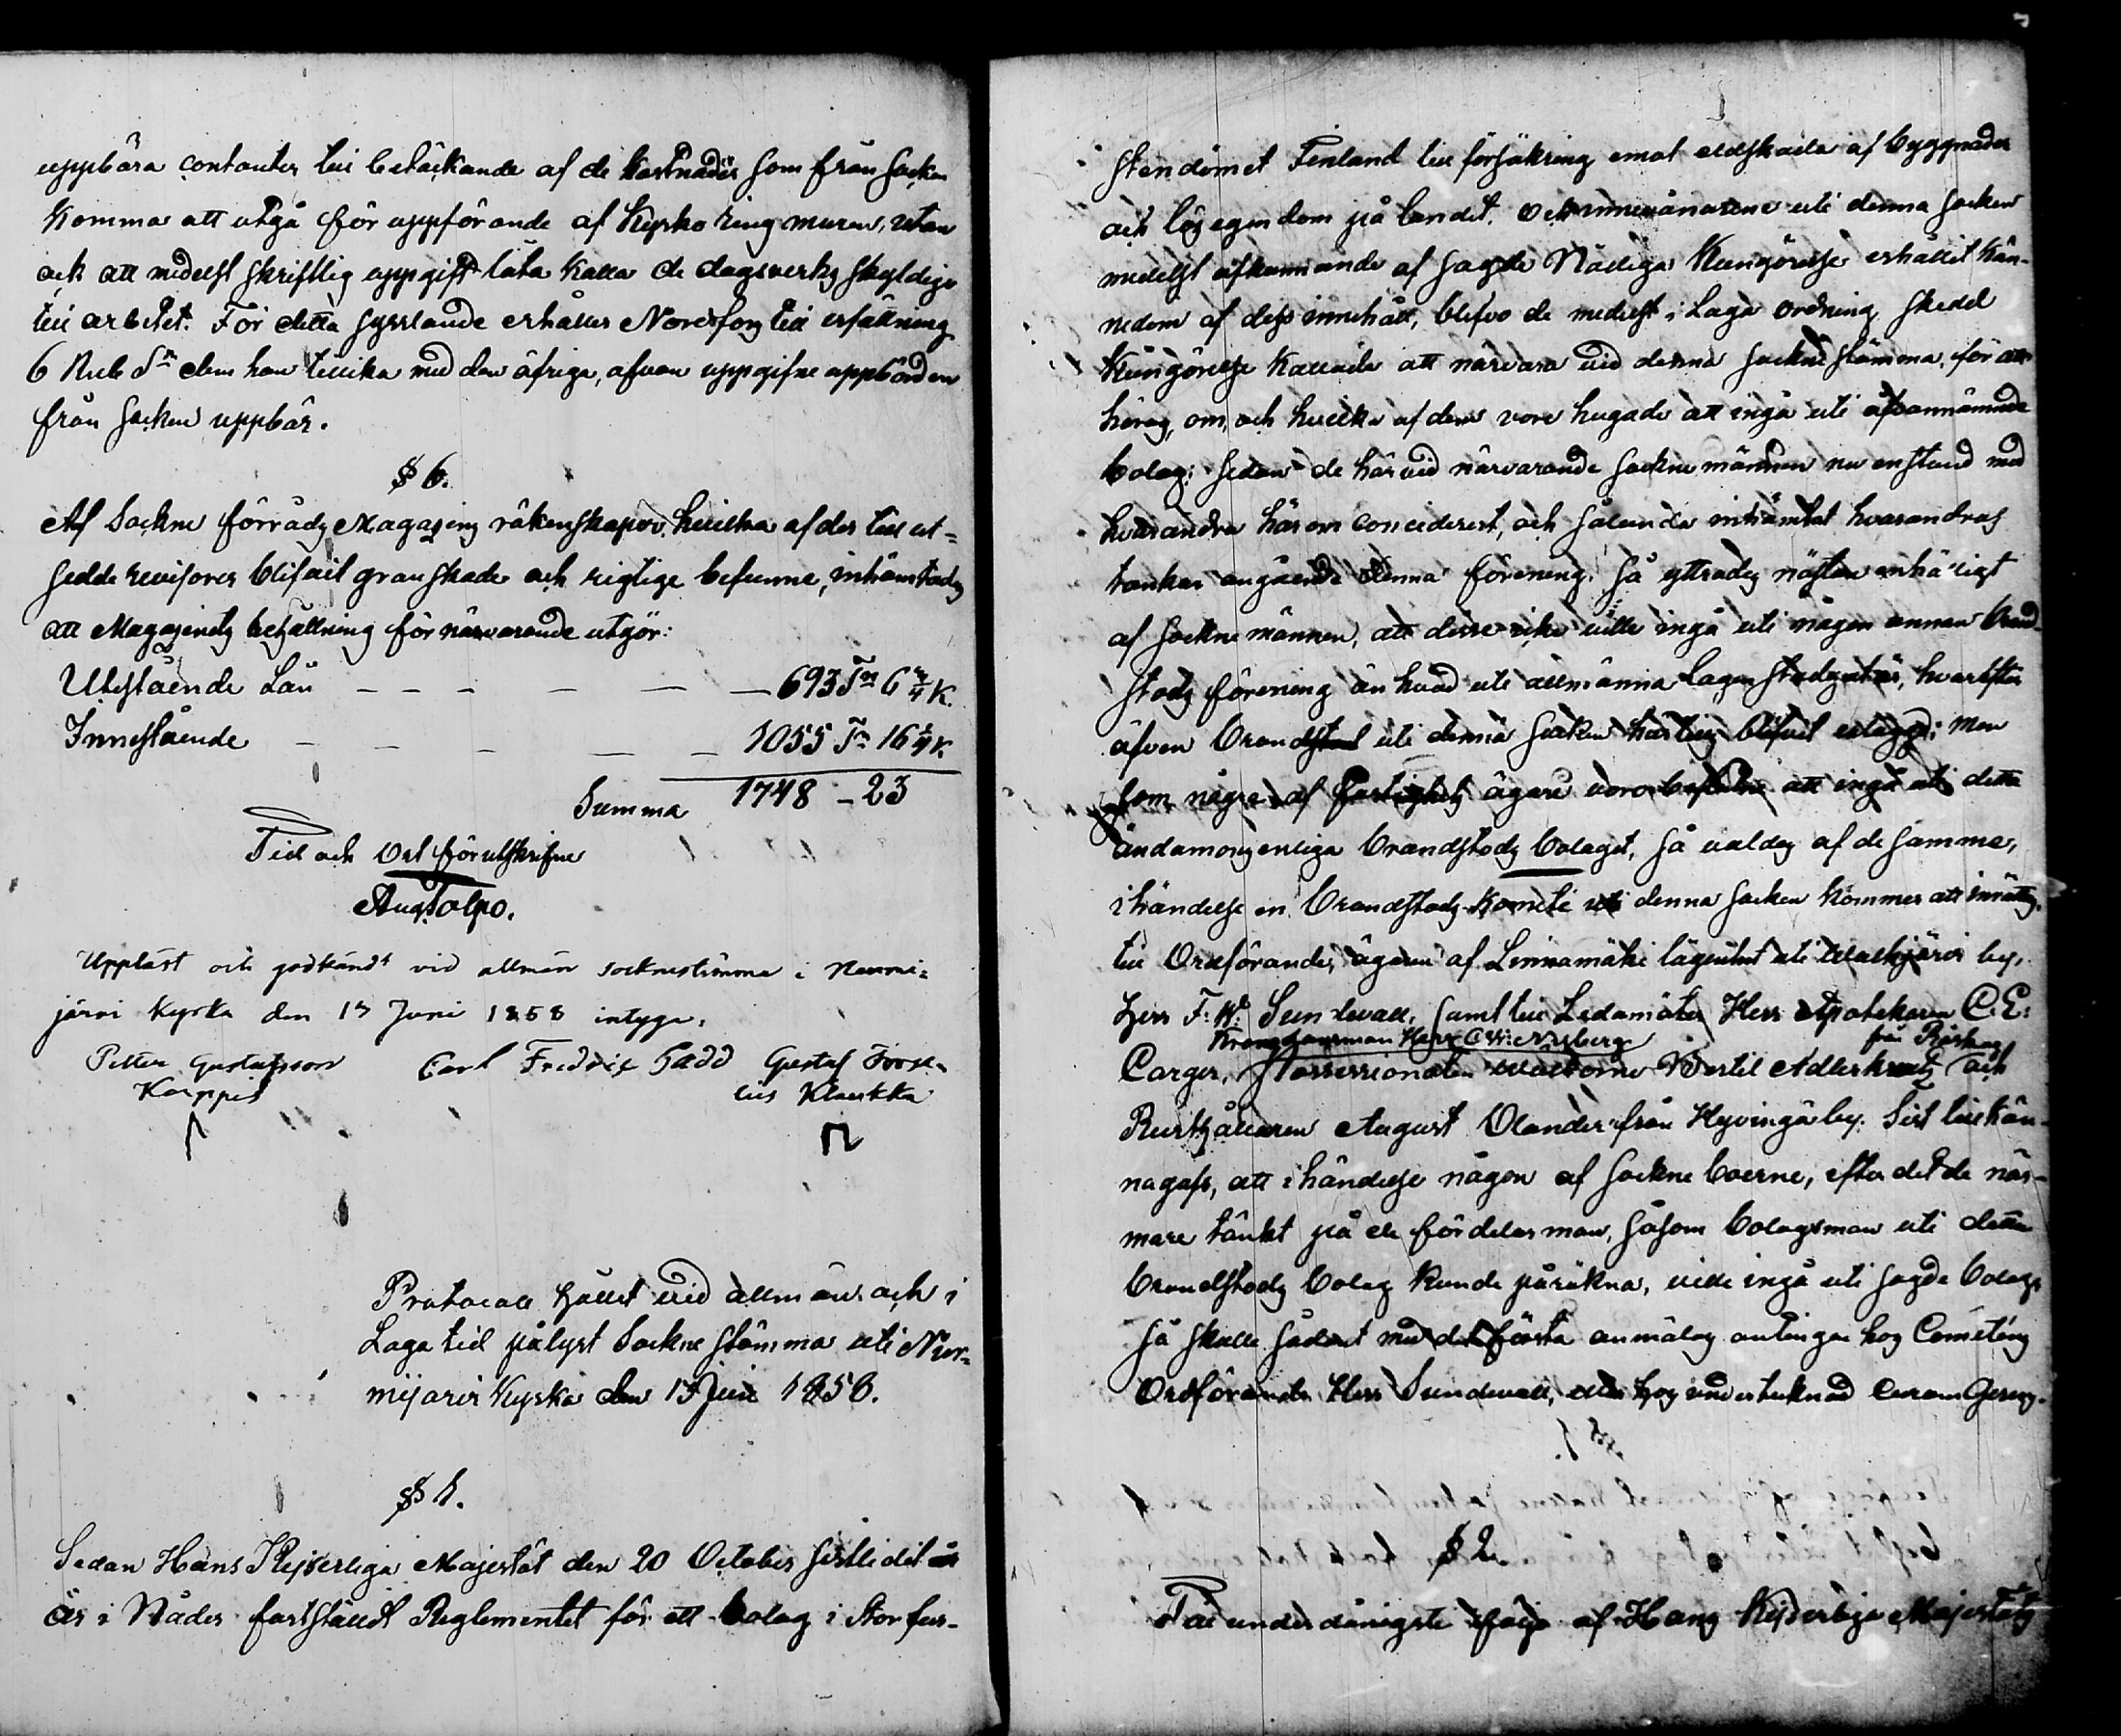 uppbära contanter till betäckande af de kostnader som från Socken
komma att utgå för uppförande af Kyrko ringmuren, utan
ock att medelst skriftlig uppgift låta kalla de dagsverks skyldige
till arbetet. För detta sysslande erhåller Nordfors till ersättning
6 Rub Sr dem han tillika med den öfriga, ofvan uppgifne uppbörden
från Socken uppbär.
§ 6.
Af Sockne förråds Magazins räkenskaper, hvilka af der till ut-
sedde revisorer blifvit granskade och riktige befunne, inhämtades
att Magazinets behållning för närvarande utgör:
Utestående Lån — — — — — — 693 Tn 6 3/4 K.
Innestående — — — — — 1055 Tn 16 1/4 K.
Summa 1748 — 23
Tid och Ort förutskrifne
Aug. Tolpo.
Uppläst och godkändt vid allmän socknestämma i Nurmi-
järvi Kyrka den 13 Juni 1858 intyga,
Petter Gustafsson Carl Fredrik Tadd Gustaf
Klaukka
Protocoll hållet vid allmän och i
Laga tid pålyst Sockne stämma uti Nur-
mijärvi Kyrka den 13 Juni 1858.
§ 1.
Sedan Hans Kejserliga Majestät den 20 October sistledit år
är i Nåder fastställt Reglementet för ett bolag i Storfur-
stendömet Finland till försäkring emot eldskada af byggnader
och lös egendom på landet, och innevånarene uti denna Socken
medelst afkunnande af sagde Nådiga Kungörelse erhållit kän-
nedom af dess innehåll, blefvo de medelst i Laga ordning skedd
Kungörelse kallade att närvara vid denna Sockne stämma, för att
höras, om, och hvilka af dem vore hugade att ingå uti ofvannämnde
bolag; Sedan de härvid närvarande Sockne männen nu en stund med
hvarandra härom conciderert, och sålunda inhämtat hvarandras
tankar angående denna förening, så yttrades nästan enhäligt
af Sockne männen, att desse icke ville ingå uti någon annan brand-
stods förening än hvad uti allmänna lagen stadgat är, hvarefter
äfven brandstod uti denna Socken härtills blifvit erlaggd; men
som några af fastighets ägare voro att ingå uti detta
ändamålsenliga brandstods bolaget, så valdes af de samma,
i händelse en brandstods Komité uti denna Socken kommer att inrättas,
till Ordförande, ägaren af Linnamäki lägenhet uti by,
Herr F. W. Sundwall, samt till Ledamöter Herr Apothekaren C. E.
Kronolänsman Herr C. W. Nyberg från
Carger, Possessionaten Bertil Adlerkreutz och
Rusthållaren August Olander från Hyvingä by. Sist tillkän-
nagafs, att i händelse någon af Sockne boerne, efter det de när-
mare tänkt på de fördelar man, såsom bolagsman uti detta
brandstods bolag kunde påräkna, ville ingå uti sagde bolag,
så skulle sådant med det första anmälas antingen hos Comiténs
Ordförande Herr Sundwall, eller hos undertecknad
§ 2.
Till underdånigste följe af Hans Kejserliga Majestäts